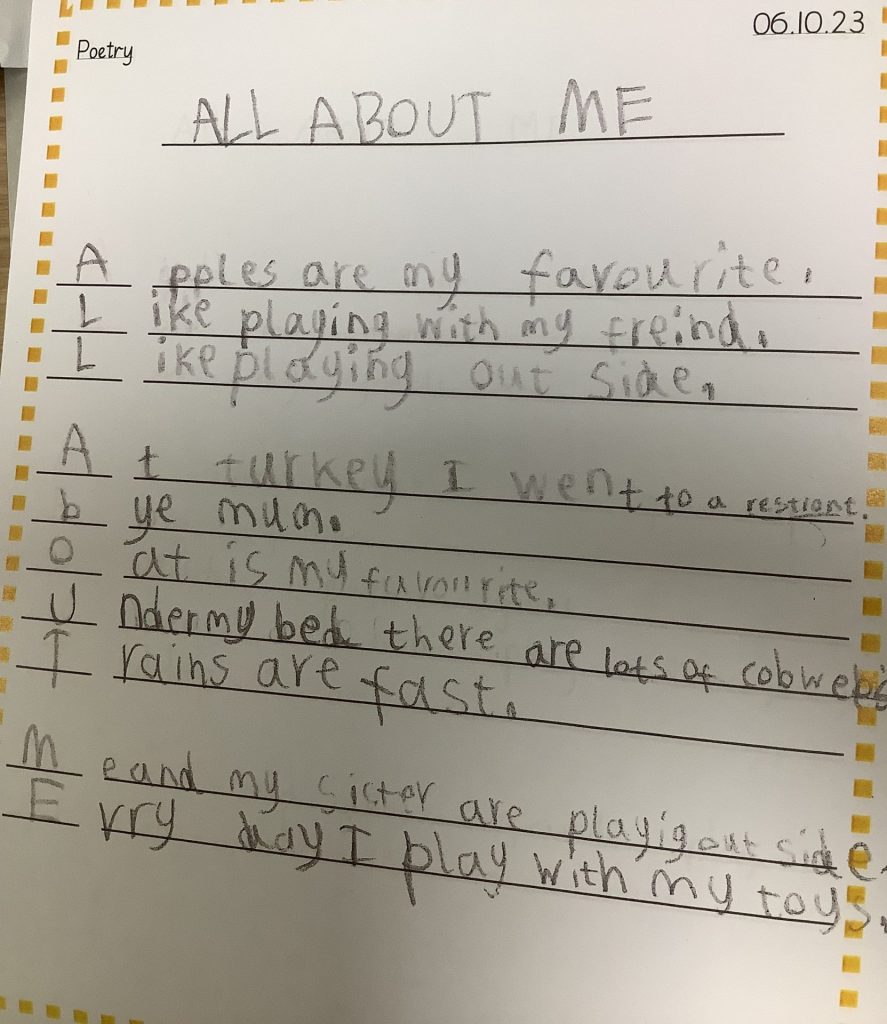 06.10.23
Poetry
ALL ABOUT ME
A pples are my favourite.
L ike playing with my freind.
L ike playing out side.
A t turkey I went to a restiont.
b ye mum.
O at is my favourite.
U nder my bed there are lots of cobwebs
T rains are fast.
M e and my sicter are playig out side.
E rry day I play with my toys.